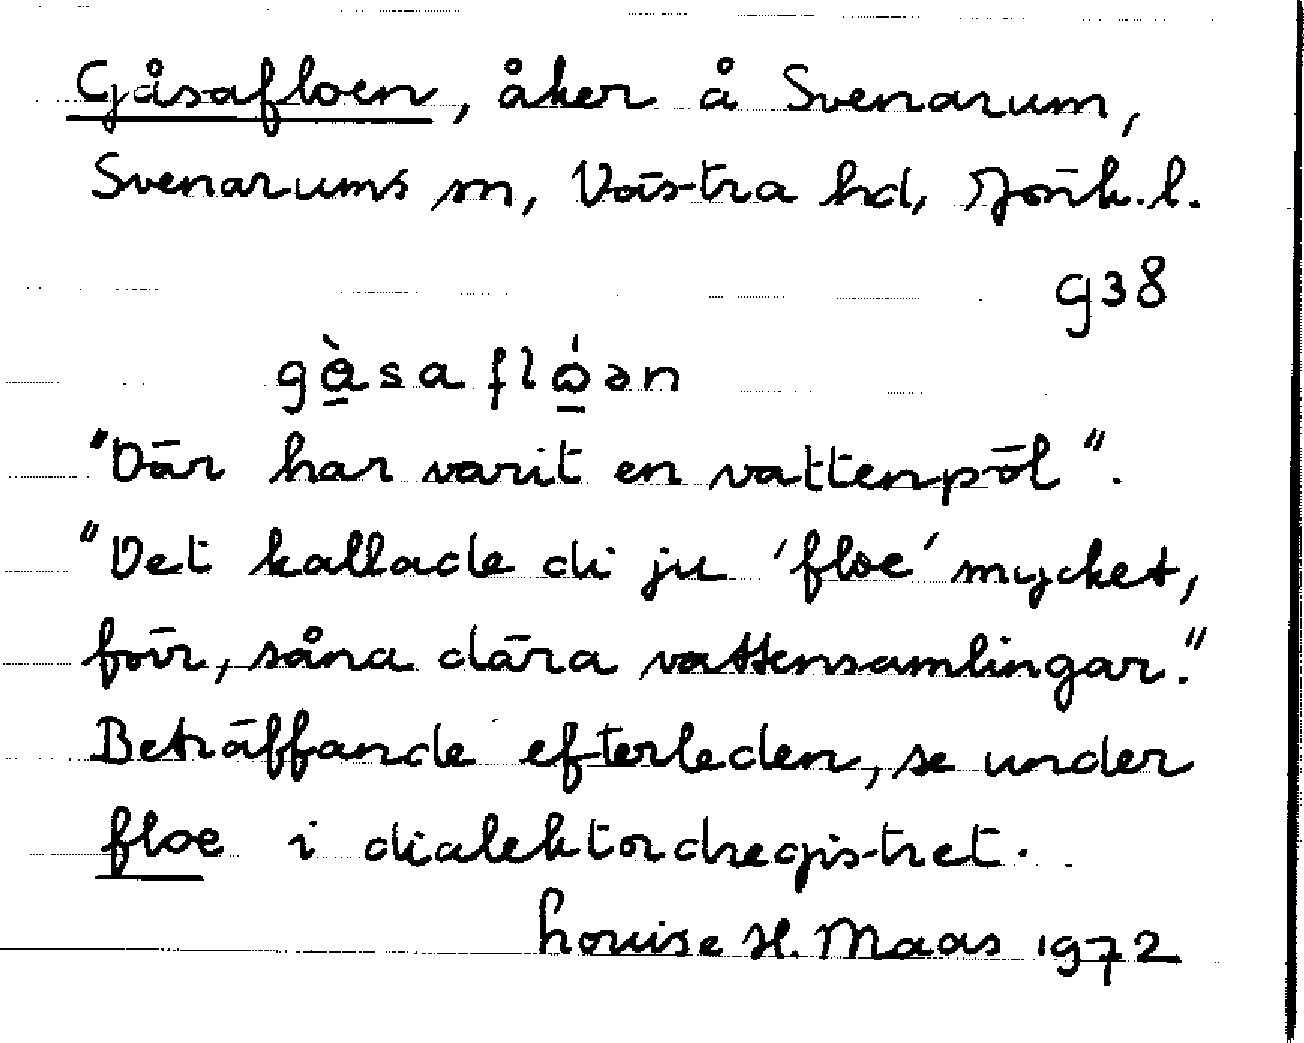 Gåsafloen, åker å Svenarum,
Svenarums sn, Västra hd, Jönk.l.
g38
gàsaflóən
"Där har varit en vattenpöl".
"Det kallade di ju 'floe' mycket,
förr, såna dära vattensamlingar."
Beträffande efterleden, se under
floe i dialektordregistret.
Louise H. Maas 1972